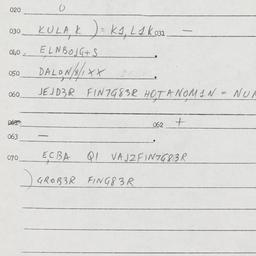 020 U
030 KULA,K ) = K1,L1K 031 —
040 E,LNBOJG+S .
050 DALON/S/XX .
060 JEJD3R FIN7G83R HO,TANOM1N = NUA
062 +
063 — .
070 E,CBA QI VAJ2FIN7G83R
) GROB3R FING83R